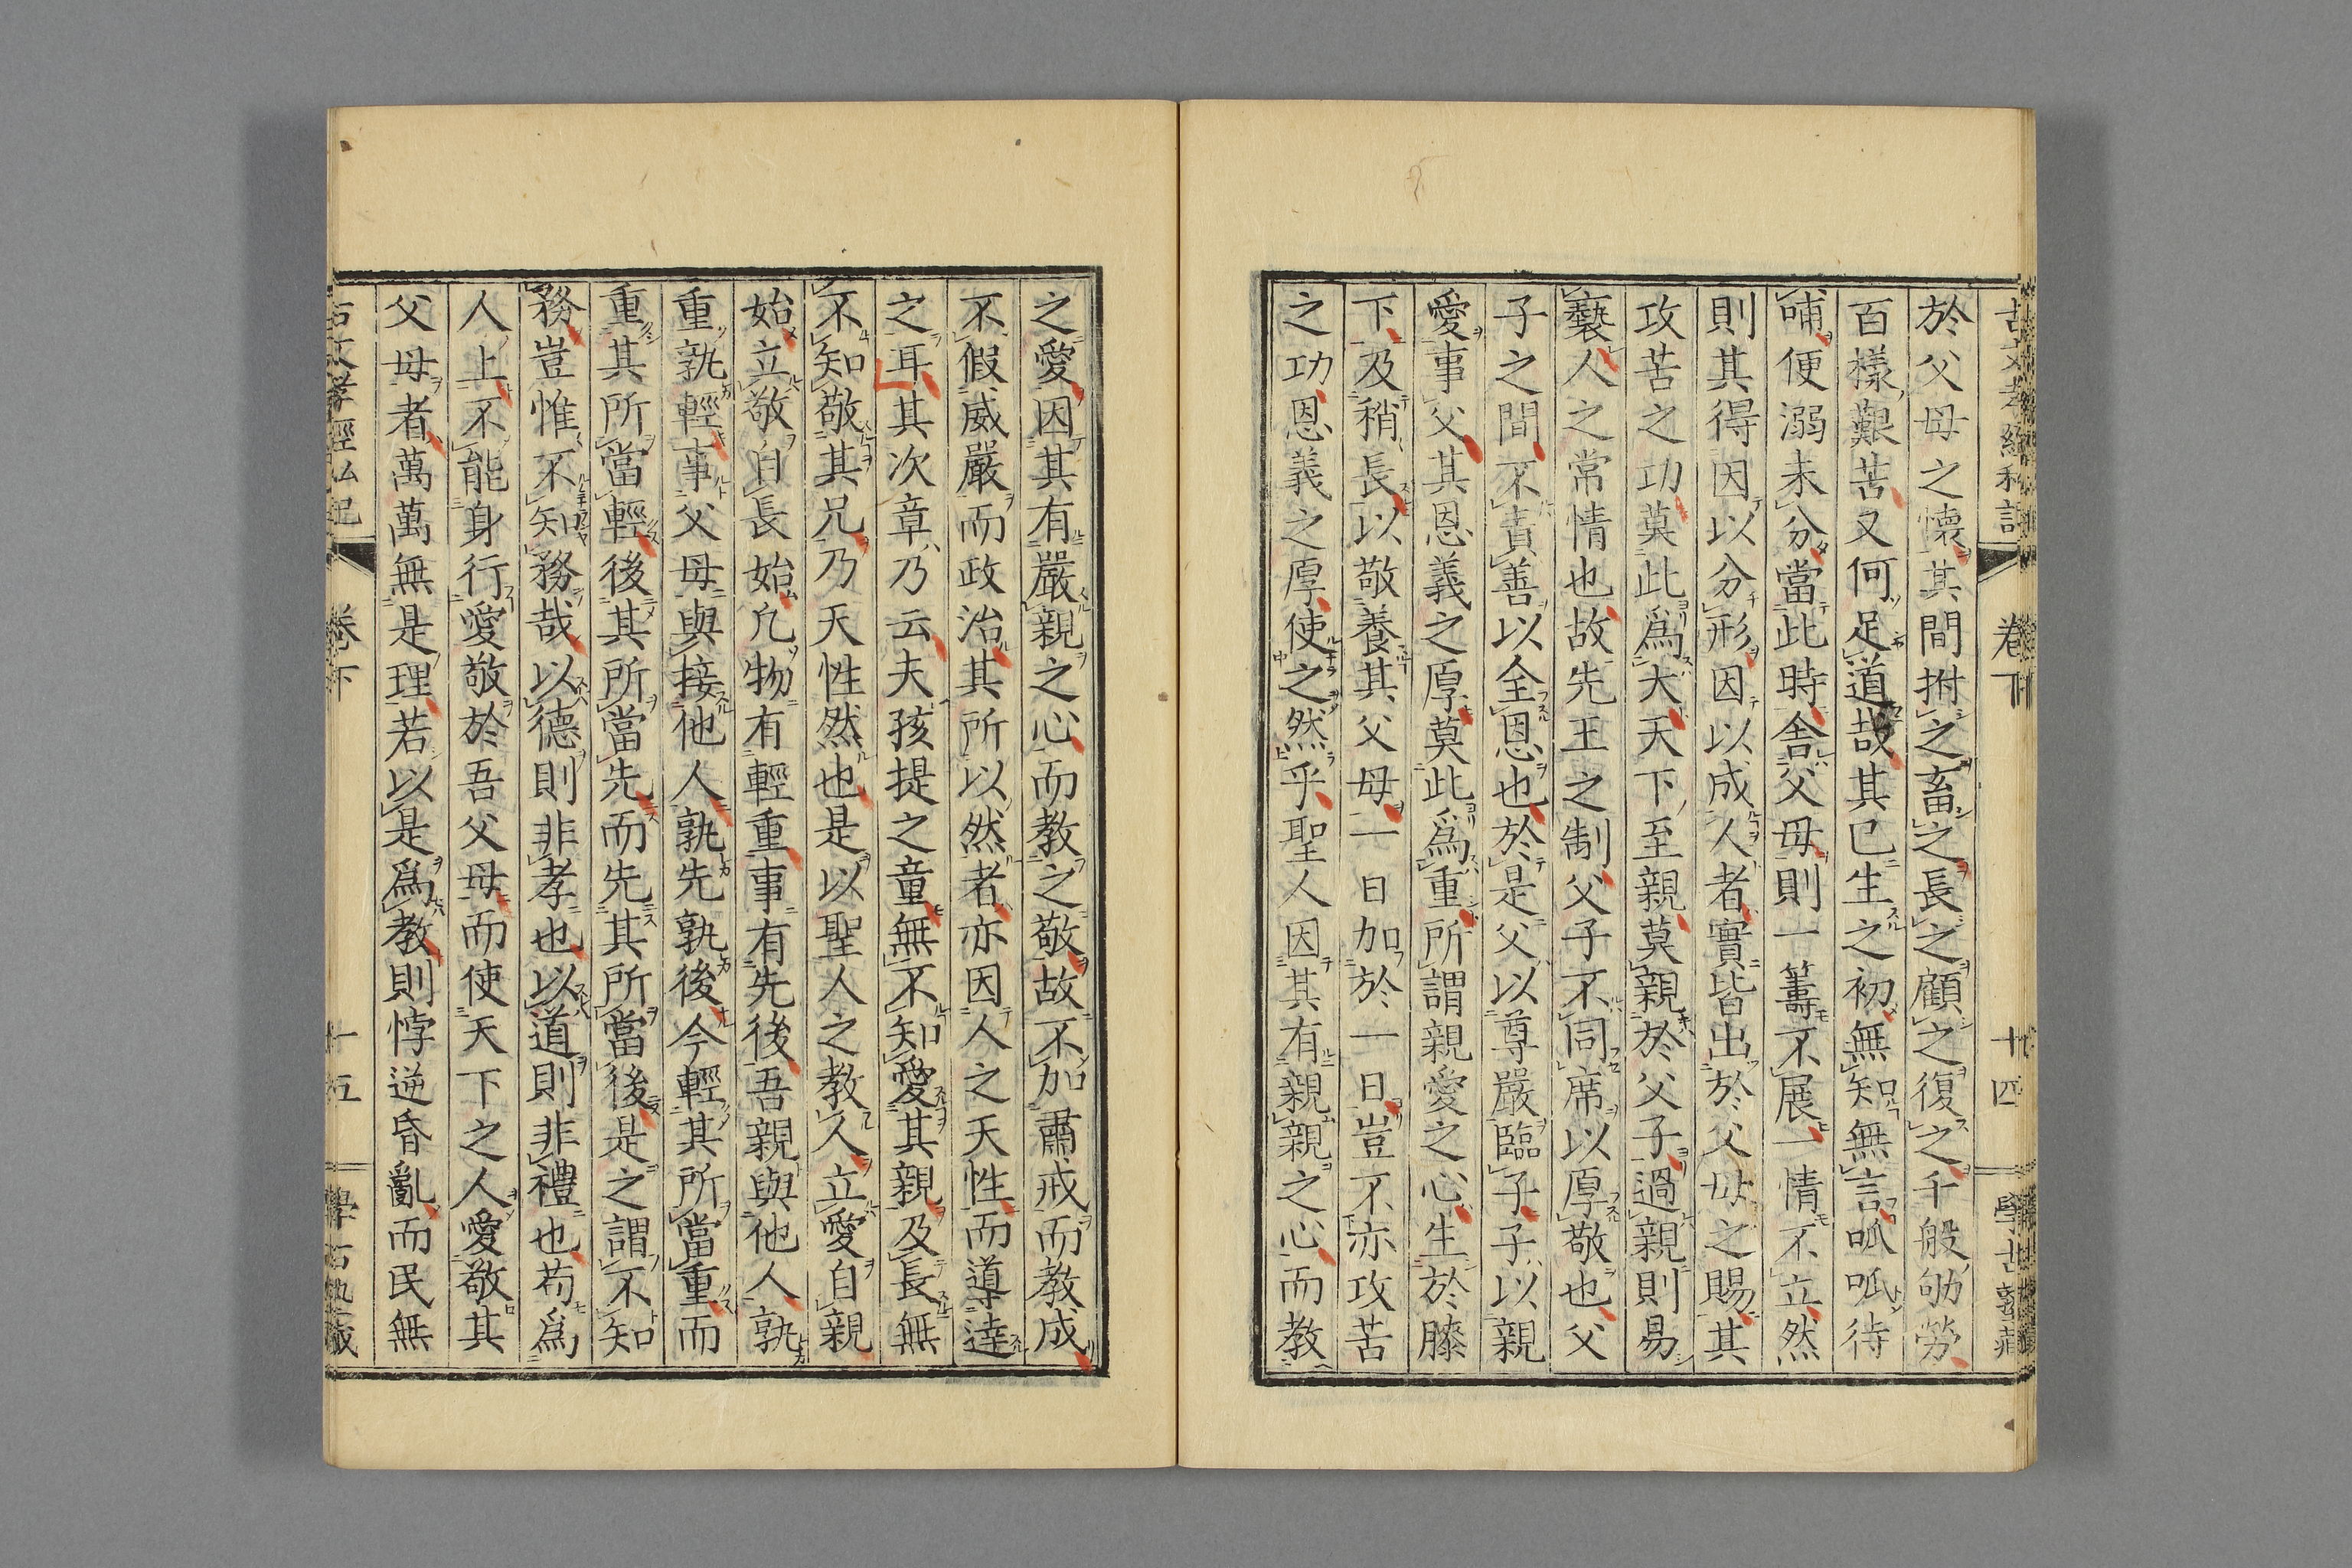 古文孝經私記 卷下 十四 學古塾藏
於父母之懷其間拊之畜之長之顧之復之千般劬勞
百樣艱苦又何足道哉其已生之初無知無言呱呱待
哺便溺未分當此時舍父母則一籌不展一情不立然
則其得因以分形因以成人者實皆出於父母之賜其
攻苦之功莫此爲大天下至親莫親於父子過親則易
褻人之常情也故先王之制父子不同席以厚敬也父
子之間不責善以全恩也於是父以尊嚴臨子子以親
愛事父其恩義之厚莫此爲重所謂親愛之心生於膝
下及稍長以敬養其父母一日加於一日豈不亦攻苦
之功恩義之厚使之然乎聖人因其有親親之心而教
之愛因其有嚴親之心而教之敬故不加肅戒而教成
不假威嚴而政治其所以然者亦因人之天性而導達
之耳其次章乃云夫孩提之童無不知愛其親及長無
不知敬其兄乃天性然也是以聖人之教人立愛自親
始立敬自長始凡物有輕重事有先後吾親與他人孰
重孰輕事父母與接他人孰先孰後今輕其所當重而
重其所當輕後其所當先而先其所當後是之謂不知
務豈惟不知務哉以德則非孝也以道則非禮也苟爲
人上不能身行愛敬於吾父母而使天下之人愛敬其
父母者萬萬無是理若以是爲教則悖逆昏亂而民無
古文孝經私記 卷下 十五 學古塾藏